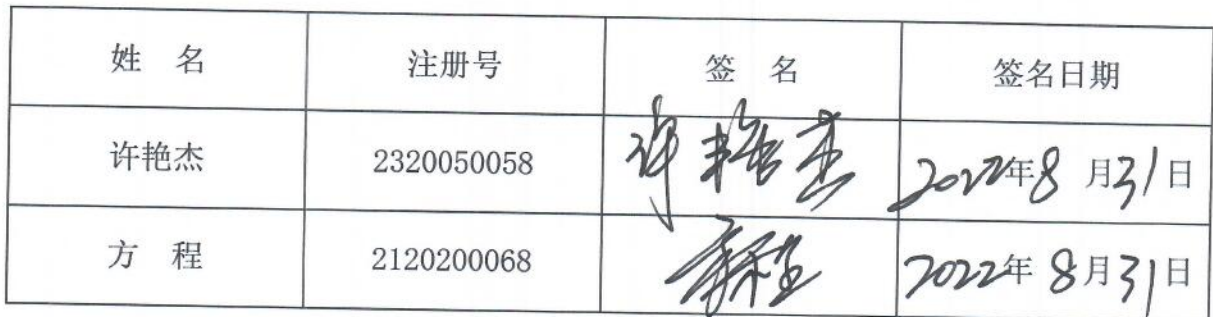 姓 名 注册号 签 名 签名日期
许艳杰 2320050058 许艳杰 2022年8月31日
方 程 2120200068 方程 2022年8月31日